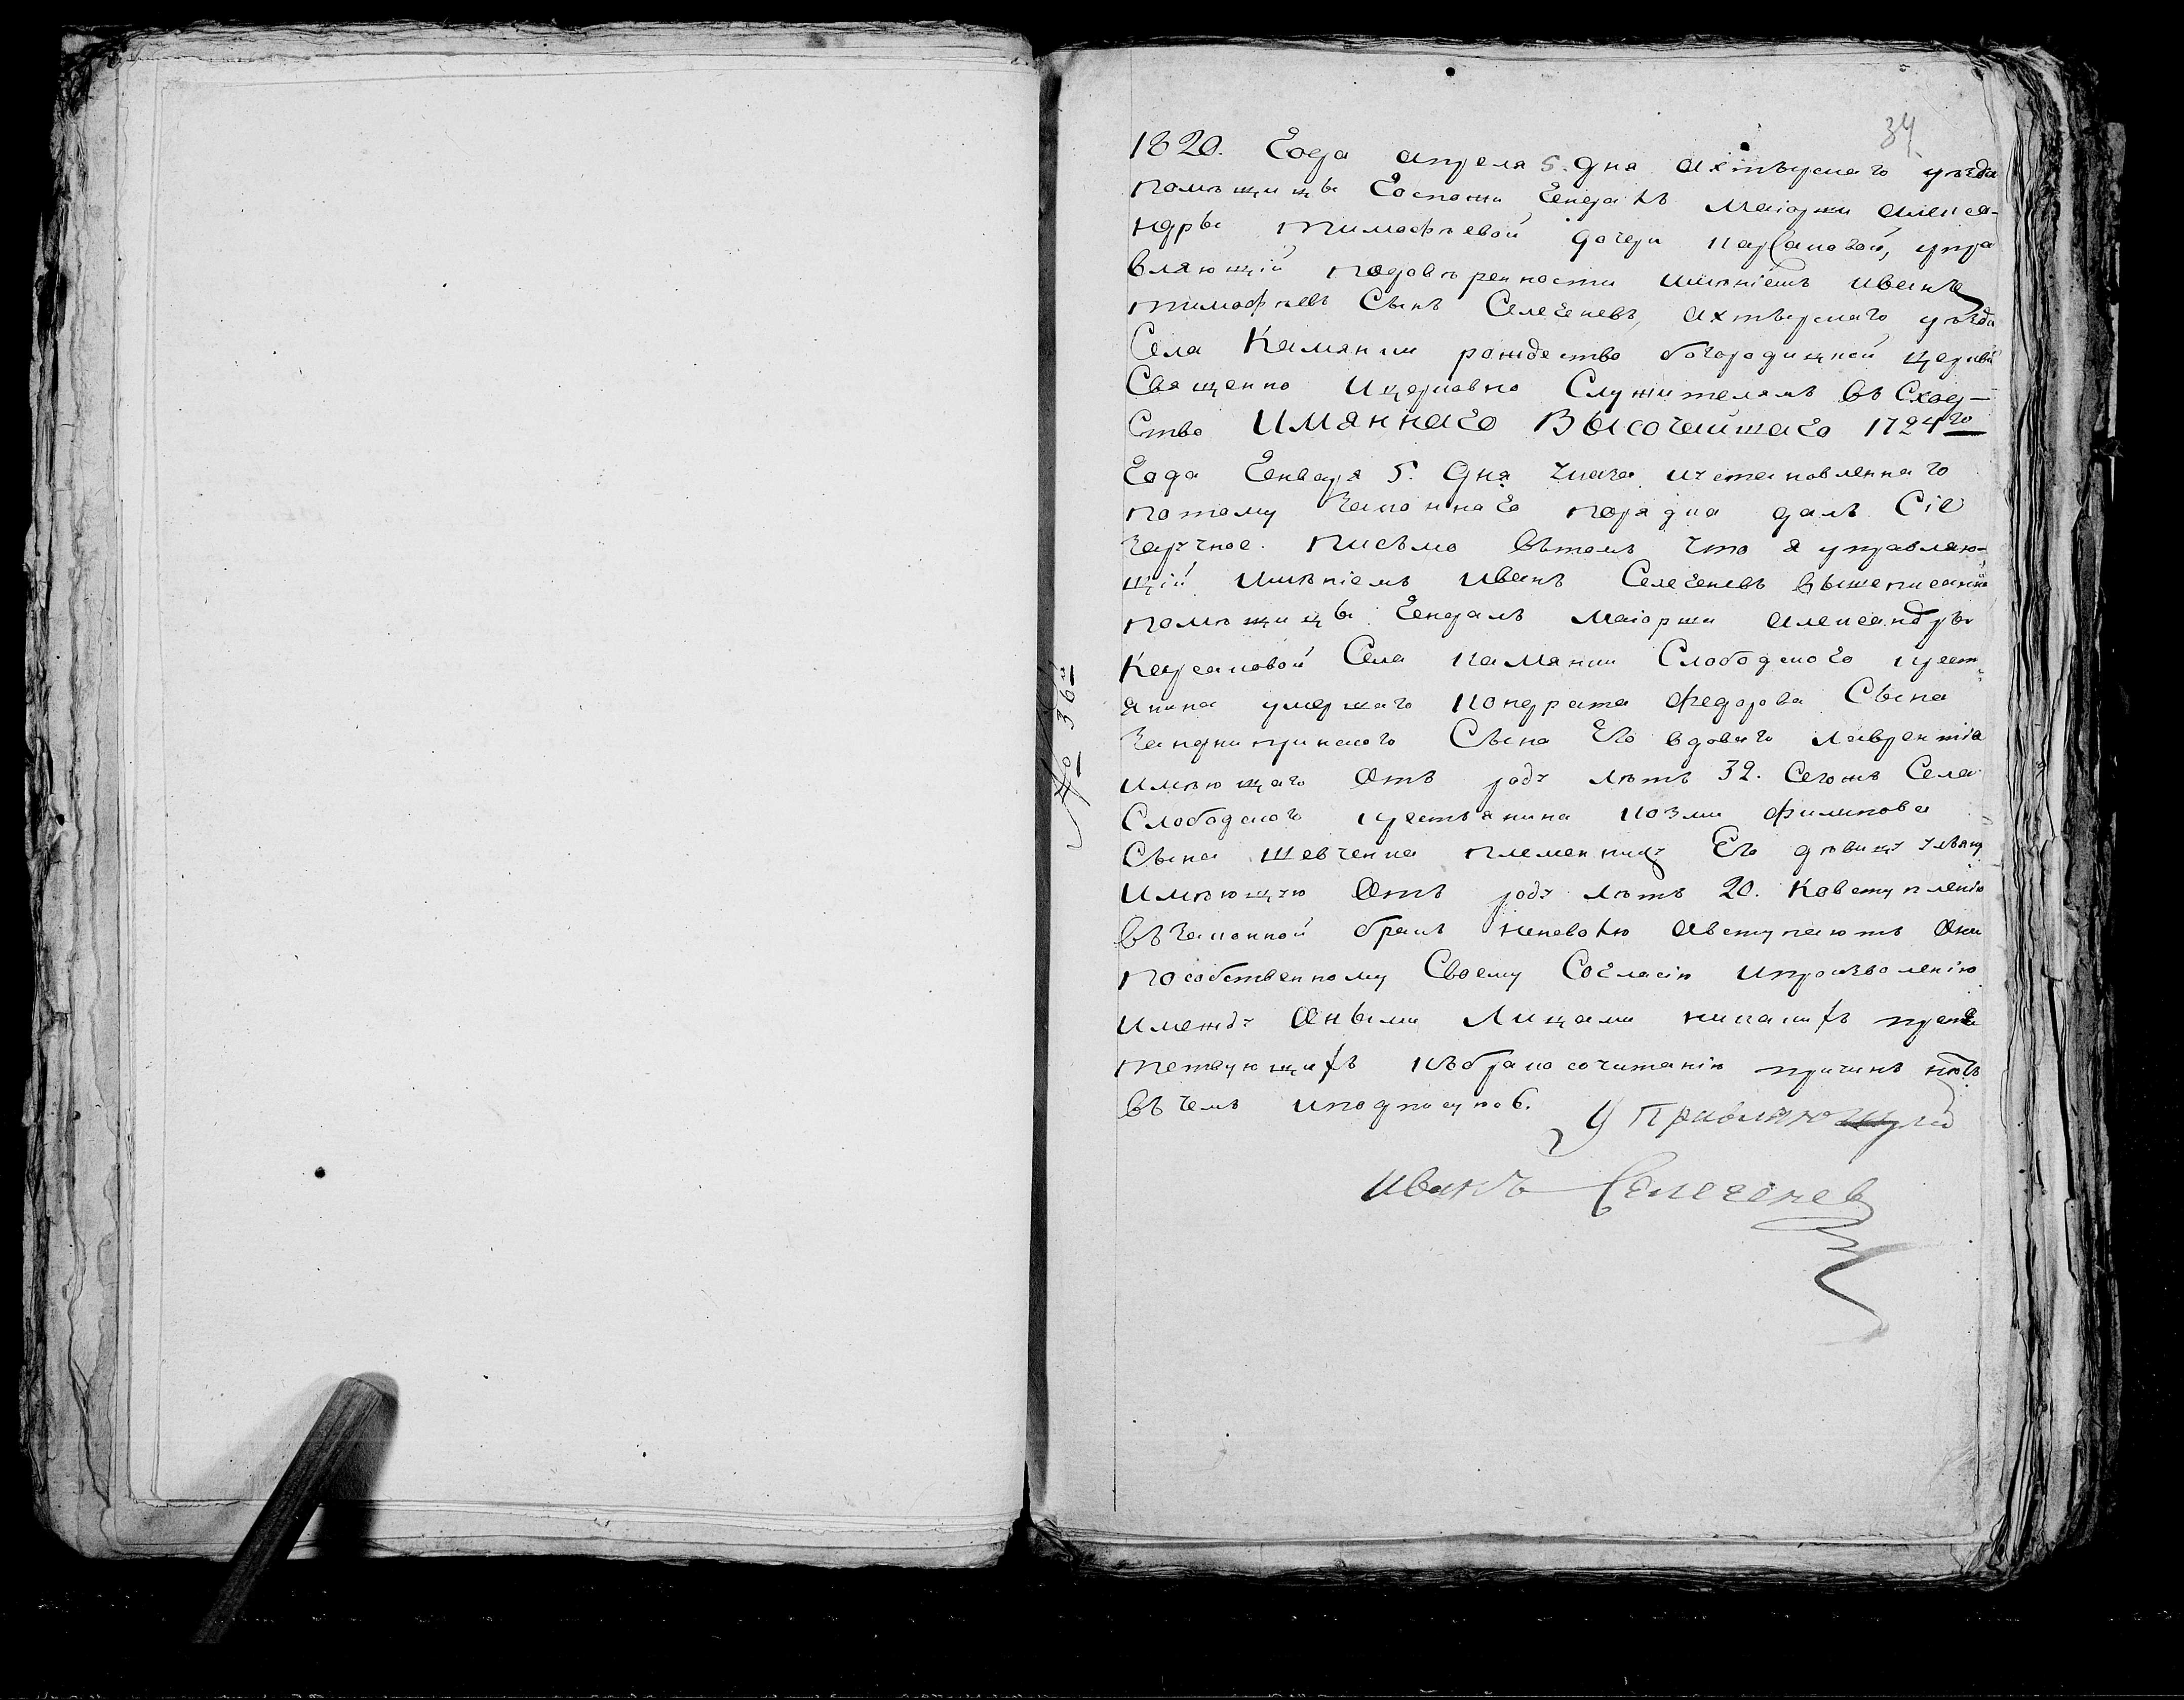 34
1820. Года апреля 5. дня ахтырскаго уѣзда
помѣщицы Госпожи Генералъ Маіорши алекса-
ндры тимофѣевой дочери карсаковой, упра
вляющій подовѣренности имѣніемъ иванъ
тимофѣевъ Сынъ Селегеневъ, ахтырскаго уѣзда
Села Камянки рождество богородичной церкви
Священно ицерковно Служителямъ въ Сход-
Ство Имяннаго Высочайшаго 1724го
Года Генваря 5. Дня указа иустановленнаго
потому Законнаго порядка далъ Сіе
заручное. писѣмо вътомъ что я управляю-
щій имѣніемъ иванъ Селегеневъ вышеписанной
помѣщицы Генералъ маіорши александры
Карсаковой Села камянки Слободского крест-
янина умершаго кондрата федорова Сына
Сына Его вдоваго лаврентія
имѣющаго Отъ роду лѣтъ 32. Сегожъ Села
Слободского крестьянина козми филипова
Сына шевченка племенницу Его дѣвицу улѣяну
Имѣющую Отъ роду лѣтъ 20. Ковступленію
въЗаконной бракъ неневолю авступаютъ Они
пособственному Своему Согласію ипроизволенію
имежду Оными Лицами никакихъ препя
тствующихъ къбракосочитанію причинъ нѣтъ
въ чемъ иподписуюсь. Управляющій
иванъ Селегенев
№ 36й